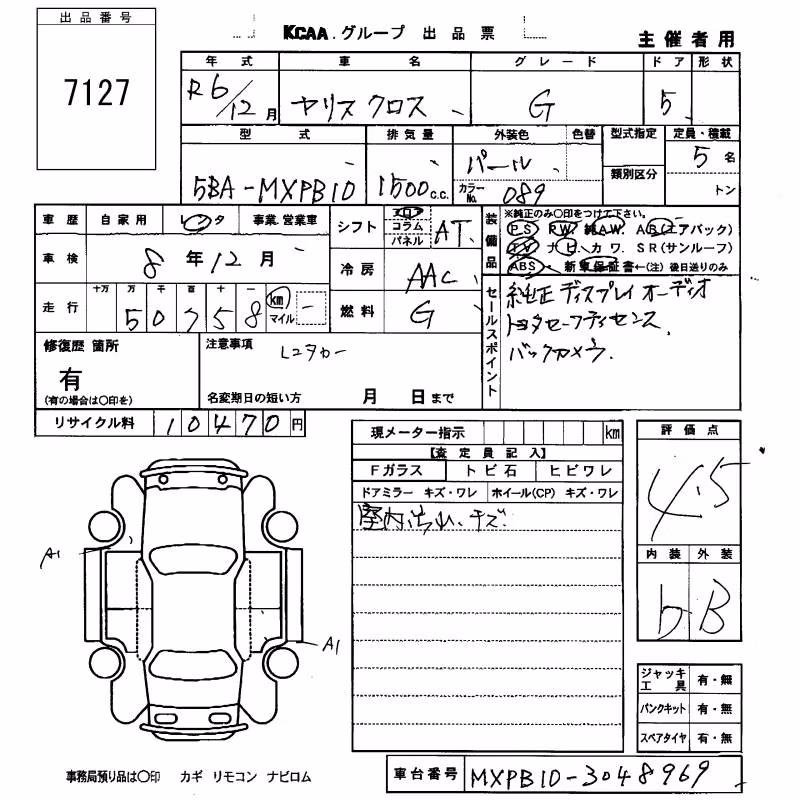 出品番号
7127
KCAA.グループ 出品票
主催者用
年式 車名 グレード ドア 形状
R6/12月 ヤリスクロス G 5
型式 排気量 外装色 色替 型式指定 定員・積載
類別区分
5BA-MXPB10 1500c.c. パール 5名
カラーNo. 089 トン
車歴 自家用 レンタ 事業.営業車
車検 8年12月
走行 十万 万 千 百 十 一
50758 km マイル
シフト フロア コラム パネル AT
冷房 AAC
燃料 G
装備品
※純正のみ〇印をつけて下さい。
PS PW 純AW. AB(エアバック)
TV ナビ カワ. SR(サンルーフ)
ABS 新車保証書←(注)後日送りのみ
セールスポイント
純正ディスプレイオーディオ
トヨタセーフティセンス
バックカメラ
修復歴 箇所
有
(有の場合は〇印を)
注意事項 レンタカー
名変期日の短い方 月 日まで
リサイクル料 10470円
現メーター指示 km
【査定員記入】
Fガラス トビ石 ヒビワレ
ドアミラー キズ・ワレ ホイール(CP) キズ・ワレ
室内 キズ
評価点
4.5
内装 外装
b B
A1
A1
ジャッキ工具 有・無
パンクキット 有・無
スペアタイヤ 有・無
事務局預り品は〇印 カギ リモコン ナビロム
車台番号 MXPB10-3048969